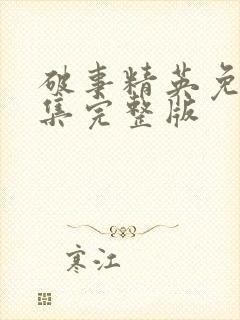 破事精英免
集完整版
寒江